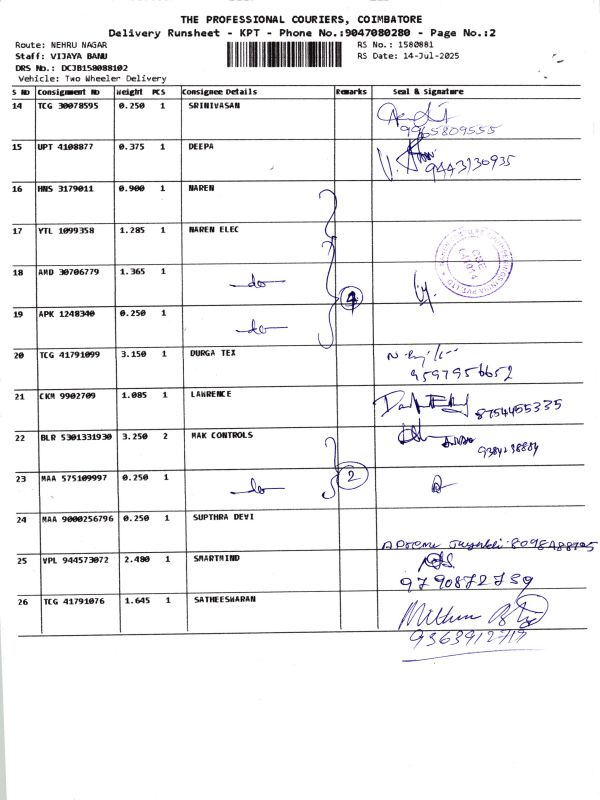 THE PROFESSIONAL COURIERS, COIMBATORE
Delivery Runsheet - KPT - Phone No.:9047080280 - Page No.:2
Route: NEHRU NAGAR RS No.: 1580881
Staff: VIJAYA BANU RS Date: 14-Jul-2025
DRS No.: DCJB158088102
Vehicle: Two Wheeler Delivery
S No Consignment No Weight PCS Consignee Details Remarks Seal & Signature
14 TCG 30078595 0.250 1 SRINIVASAN
9965809555
15 UPT 4108877 0.375 1 DEEPA
9443130935
16 HNS 3179011 0.900 1 NAREN
17 YTL 1099358 1.285 1 NAREN ELEC
18 AMD 30706779 1.365 1 do 4
19 APK 1248340 0.250 1 do
20 TCG 41791099 3.150 1 DURGA TEX
9597956652
21 CKM 9902709 1.085 1 LAWRENCE 8754455335
22 BLR 5301331930 3.250 2 MAK CONTROLS
23 MAA 575109997 0.250 1 do 2
24 MAA 9000256796 0.250 1 SUPTHRA DEVI
25 VPL 944573072 2.480 1 SMARTMIND
9790872739
26 TCG 41791076 1.645 1 SATHEESWARAN
9363912719